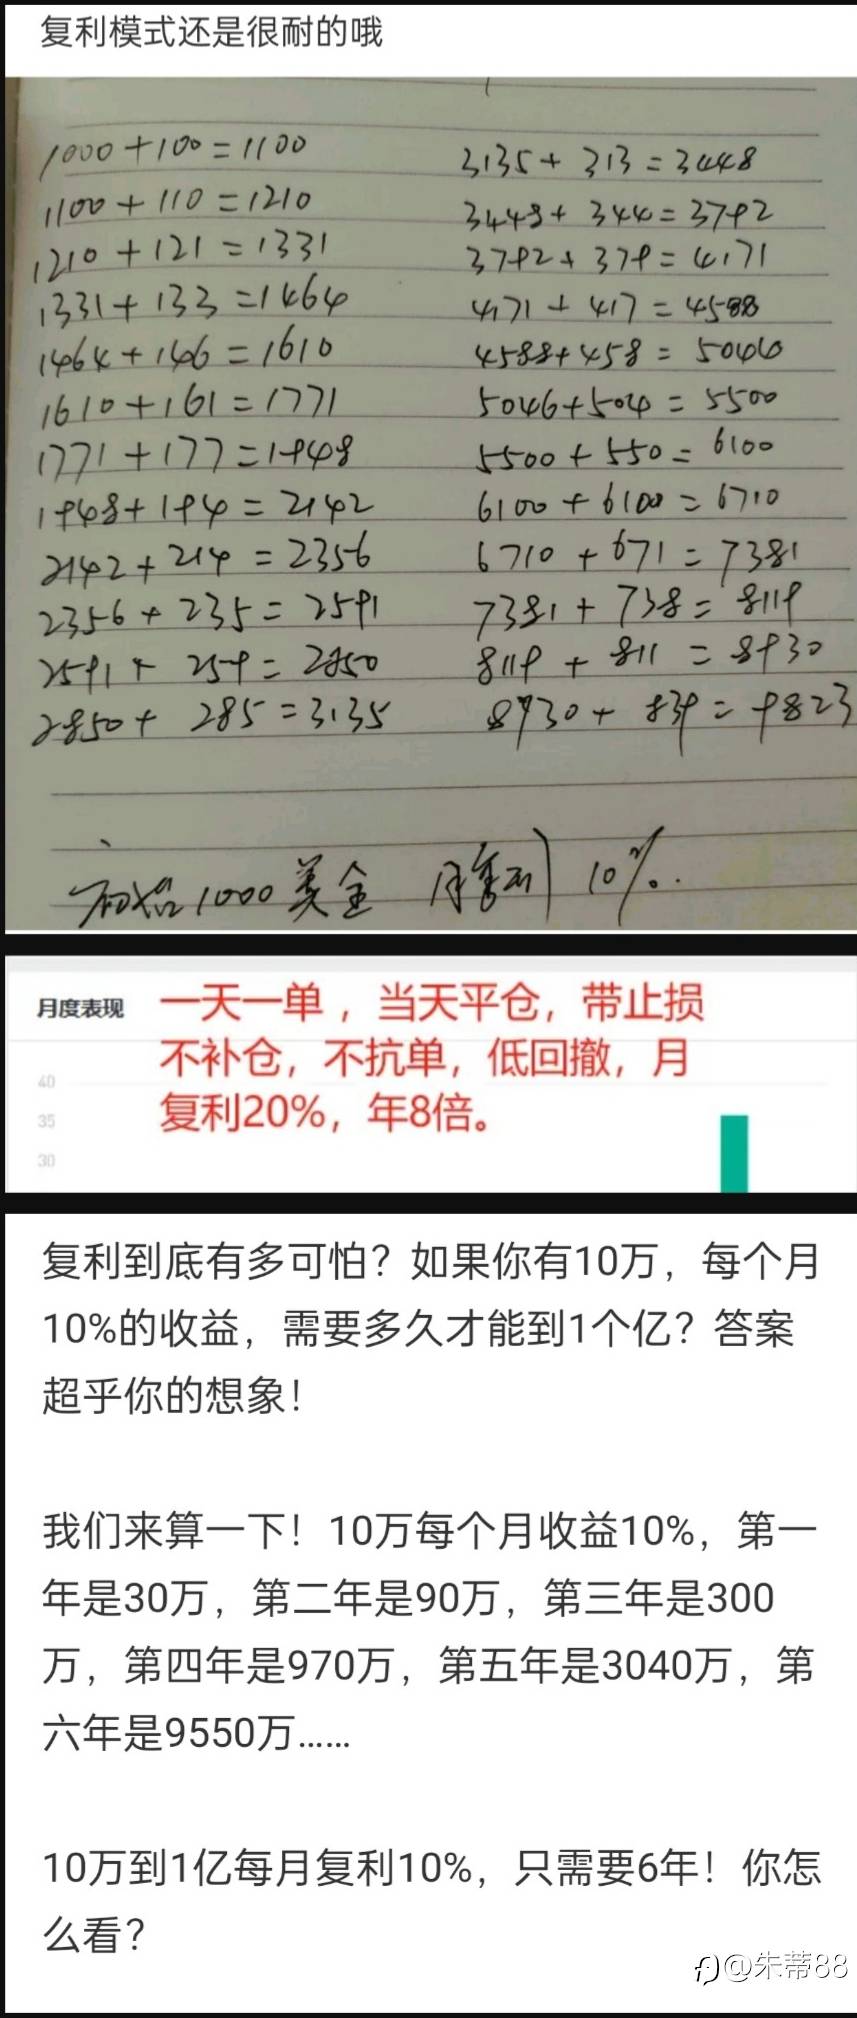 复利模式还是很耐的哦
1000+100=1100
1100+110=1210
1210+121=1331
1331+133=1464
1464+146=1610
1610+161=1771
1771+177=1948
1948+194=2142
2142+214=2356
2356+235=2591
2591+259=2850
2850+285=3135
3135+313=3448
3448+344=3792
3792+379=4171
4171+417=4588
4588+458=5046
5046+504=5500
5500+550=6100
6100+6100=6710
6710+671=7381
7381+738=8119
8119+811=8930
8930+839=9823
初始1000美金 月复利10%.
月度表现
一天一单，当天平仓，带止损
不补仓，不抗单，低回撤，月
复利20%，年8倍。
40
35
30
复利到底有多可怕？如果你有10万，每个月
10%的收益，需要多久才能到1个亿？答案
超乎你的想象！
我们来算一下！10万每个月收益10%，第一
年是30万，第二年是90万，第三年是300
万，第四年是970万，第五年是3040万，第
六年是9550万……
10万到1亿每月复利10%，只需要6年！你怎
么看？
@朱蒂88